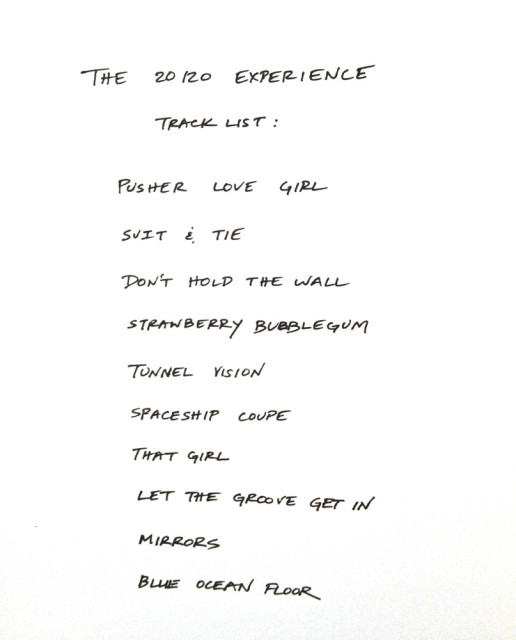 THE 20/20 EXPERIENCE
TRACK LIST:
PUSHER LOVE GIRL
SUIT & TIE
DON'T HOLD THE WALL
STRAWBERRY BUBBLEGUM
TUNNEL VISION
SPACESHIP COUPE
THAT GIRL
LET THE GROOVE GET IN
MIRRORS
BLUE OCEAN FLOOR